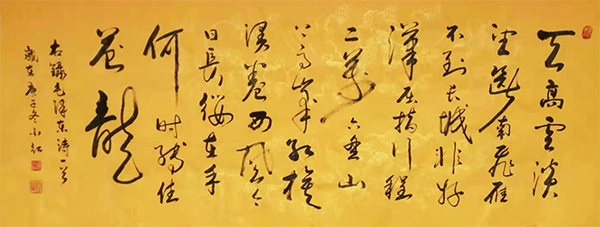 天高雲淡
望断南飛雁
不到长城非好
漢屈指行程
二萬六盘山
上高峰红旗
漫卷西風今
日長缨在手
何时缚住
苍龍
右録毛澤东詩一首
歲在庚子冬小红